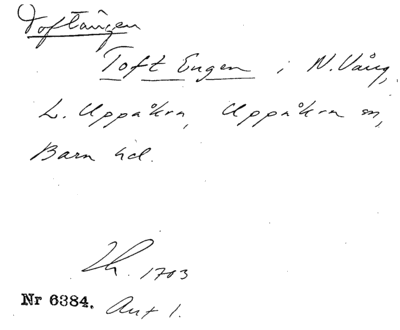 Toftängen
Toft Engen i N. Vång,
L. Uppåkra, Uppåkra sn,
Bara hd.
Lh. 1703
Nr 6384. Ant 1.